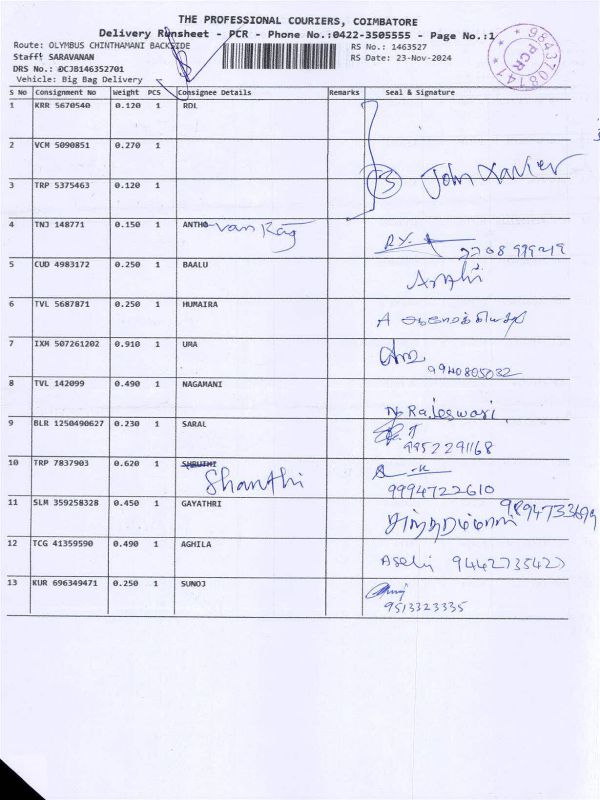 THE PROFESSIONAL COURIERS, COIMBATORE
Delivery Runsheet - PCR - Phone No.:0422-3505555 - Page No.:1
Route: OLYMBUS CHINTHAMANI BACKSIDE RS No.: 1463527
Staff: SARAVANAN RS Date: 23-Nov-2024
DRS No.: DCJB146352701
Vehicle: Big Bag Delivery
9843708141 PCR
S No Consignment No Weight PCS Consignee Details Remarks Seal & Signature
1 KRR 5670540 0.120 1 RDL
2 VCM 5090851 0.270 1
3 TRP 5375463 0.120 1 3 John Xavier
4 TNJ 148771 0.150 1 ANTHO van Raj
5 CUD 4983172 0.250 1 BAALU
6 TVL 5687871 0.250 1 HUMAIRA A
7 IXM 507261202 0.910 1 URA
9940805032
8 TVL 142099 0.490 1 NAGAMANI Rajeswari
9 BLR 1250490627 0.230 1 SARAL
9952291168
10 TRP 7837903 0.620 1 SHRUTHI
Shanthi 9994722610
11 SLM 359258328 0.450 1 GAYATHRI
12 TCG 41359590 0.490 1 AGHILA
13 KUR 696349471 0.250 1 SUNOJ
9513323335